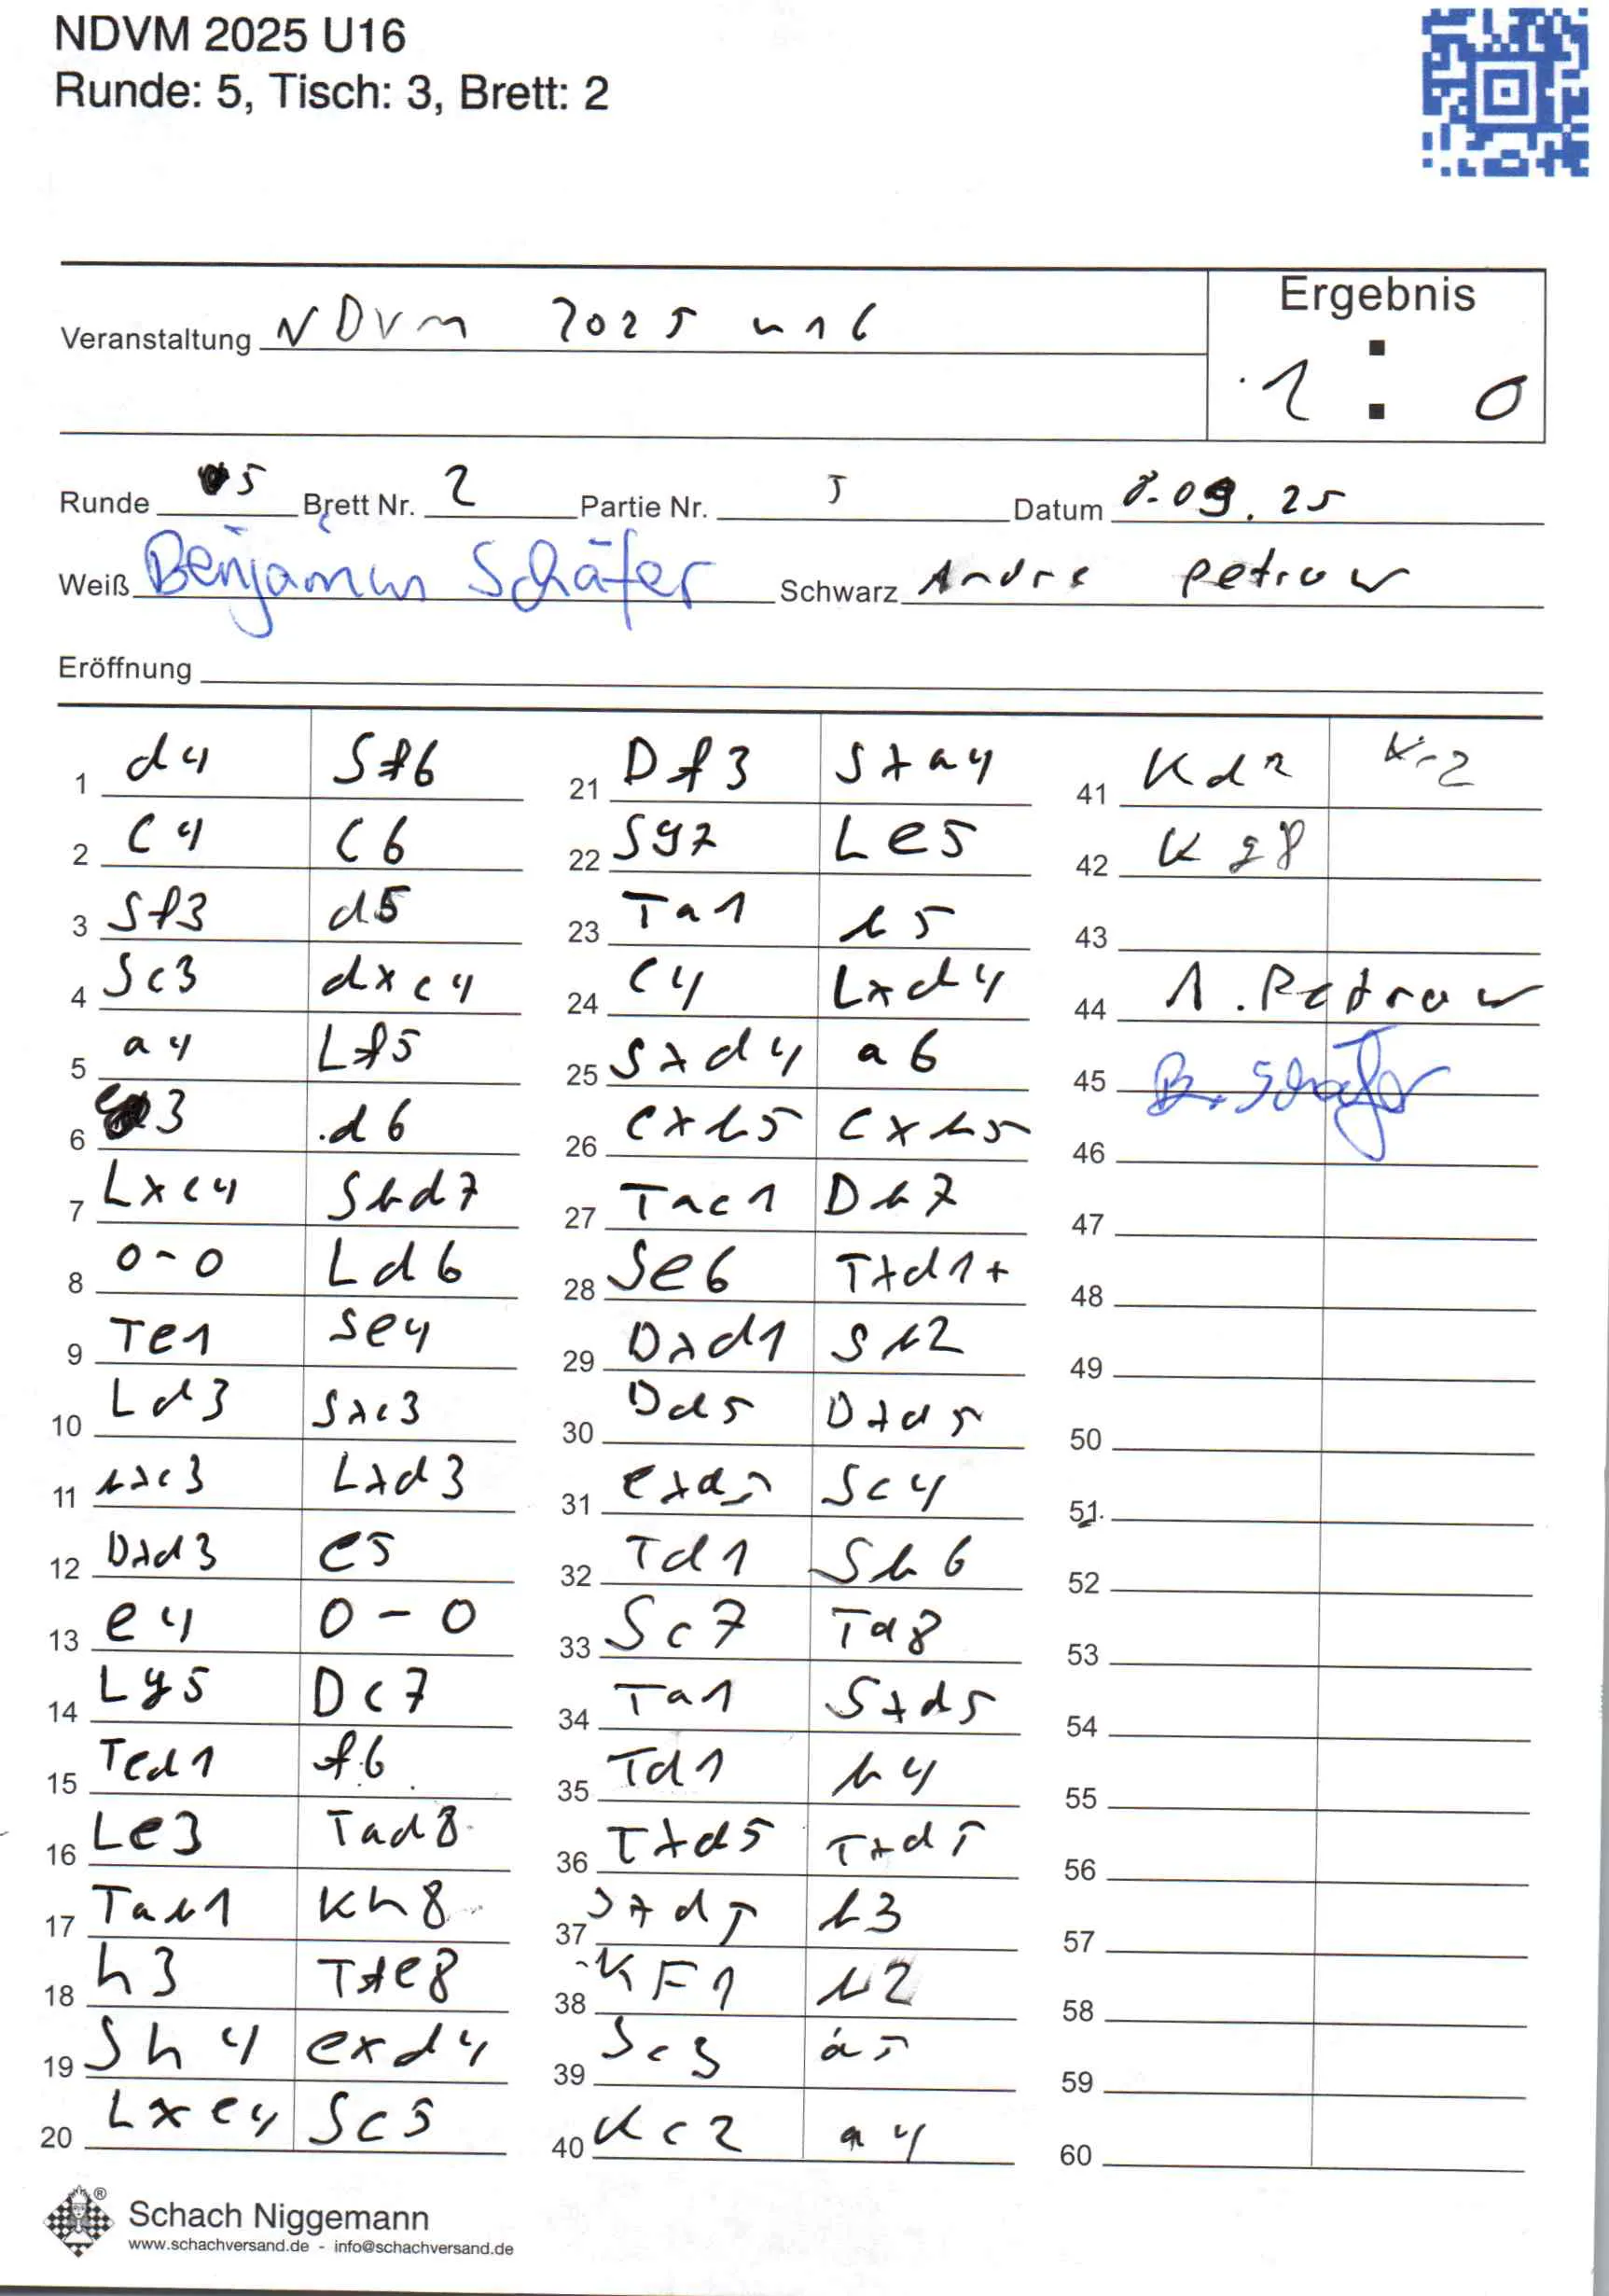 NDVM 2025 U16
Runde: 5, Tisch: 3, Brett: 2
Ergebnis
Veranstaltung NDVM 2025 u16
1 : 0
Runde 5 Brett Nr. 2 Partie Nr. 5 Datum 8.09.25
Weiß Benjamin Schäfer Schwarz Andre Petrow
Eröffnung
1 d4 Sf6
2 c4 c6
3 Sf3 d5
4 Sc3 dxc4
5 a4 Lf5
6 e3 .d6
7 Lxc4 Sbd7
8 0-0 Ld6
9 Te1 Se4
10 Ld3 Sxc3
11 bxc3 Lxd3
12 Dxd3 e5
13 e4 0-0
14 Lg5 Dc7
15 Ted1 f6
16 Le3 Tad8
17 Tab1 Kh8
18 h3 Tfe8
19 Sh4 exd4
20 Lxe4 Sc5
21 Df3 Sxa4
22 Sg7 Le5
23 Ta1 b5
24 c4 Lxd4
25 Sxd4 a6
26 cxb5 cxb5
27 Tac1 Db7
28 Se6 Txd1+
29 Dxd1 Sb2
30 Dd5 Dxd5
31 exd5 Sc4
32 Td1 Sb6
33 Sc7 Td8
34 Ta1 Sxd5
35 Td1 b4
36 Txd5 Txd5
37 Sxd5 b3
38 KF1 b2
39 Sc3 a5
40 Kc2 a4
41 Kd2
42 Kg8
43
44 A. Petrow
45 B. Schäfer
46
47
48
49
50
51.
52
53
54
55
56
57
58
59
60
Schach Niggemann
www.schachversand.de - info@schachversand.de